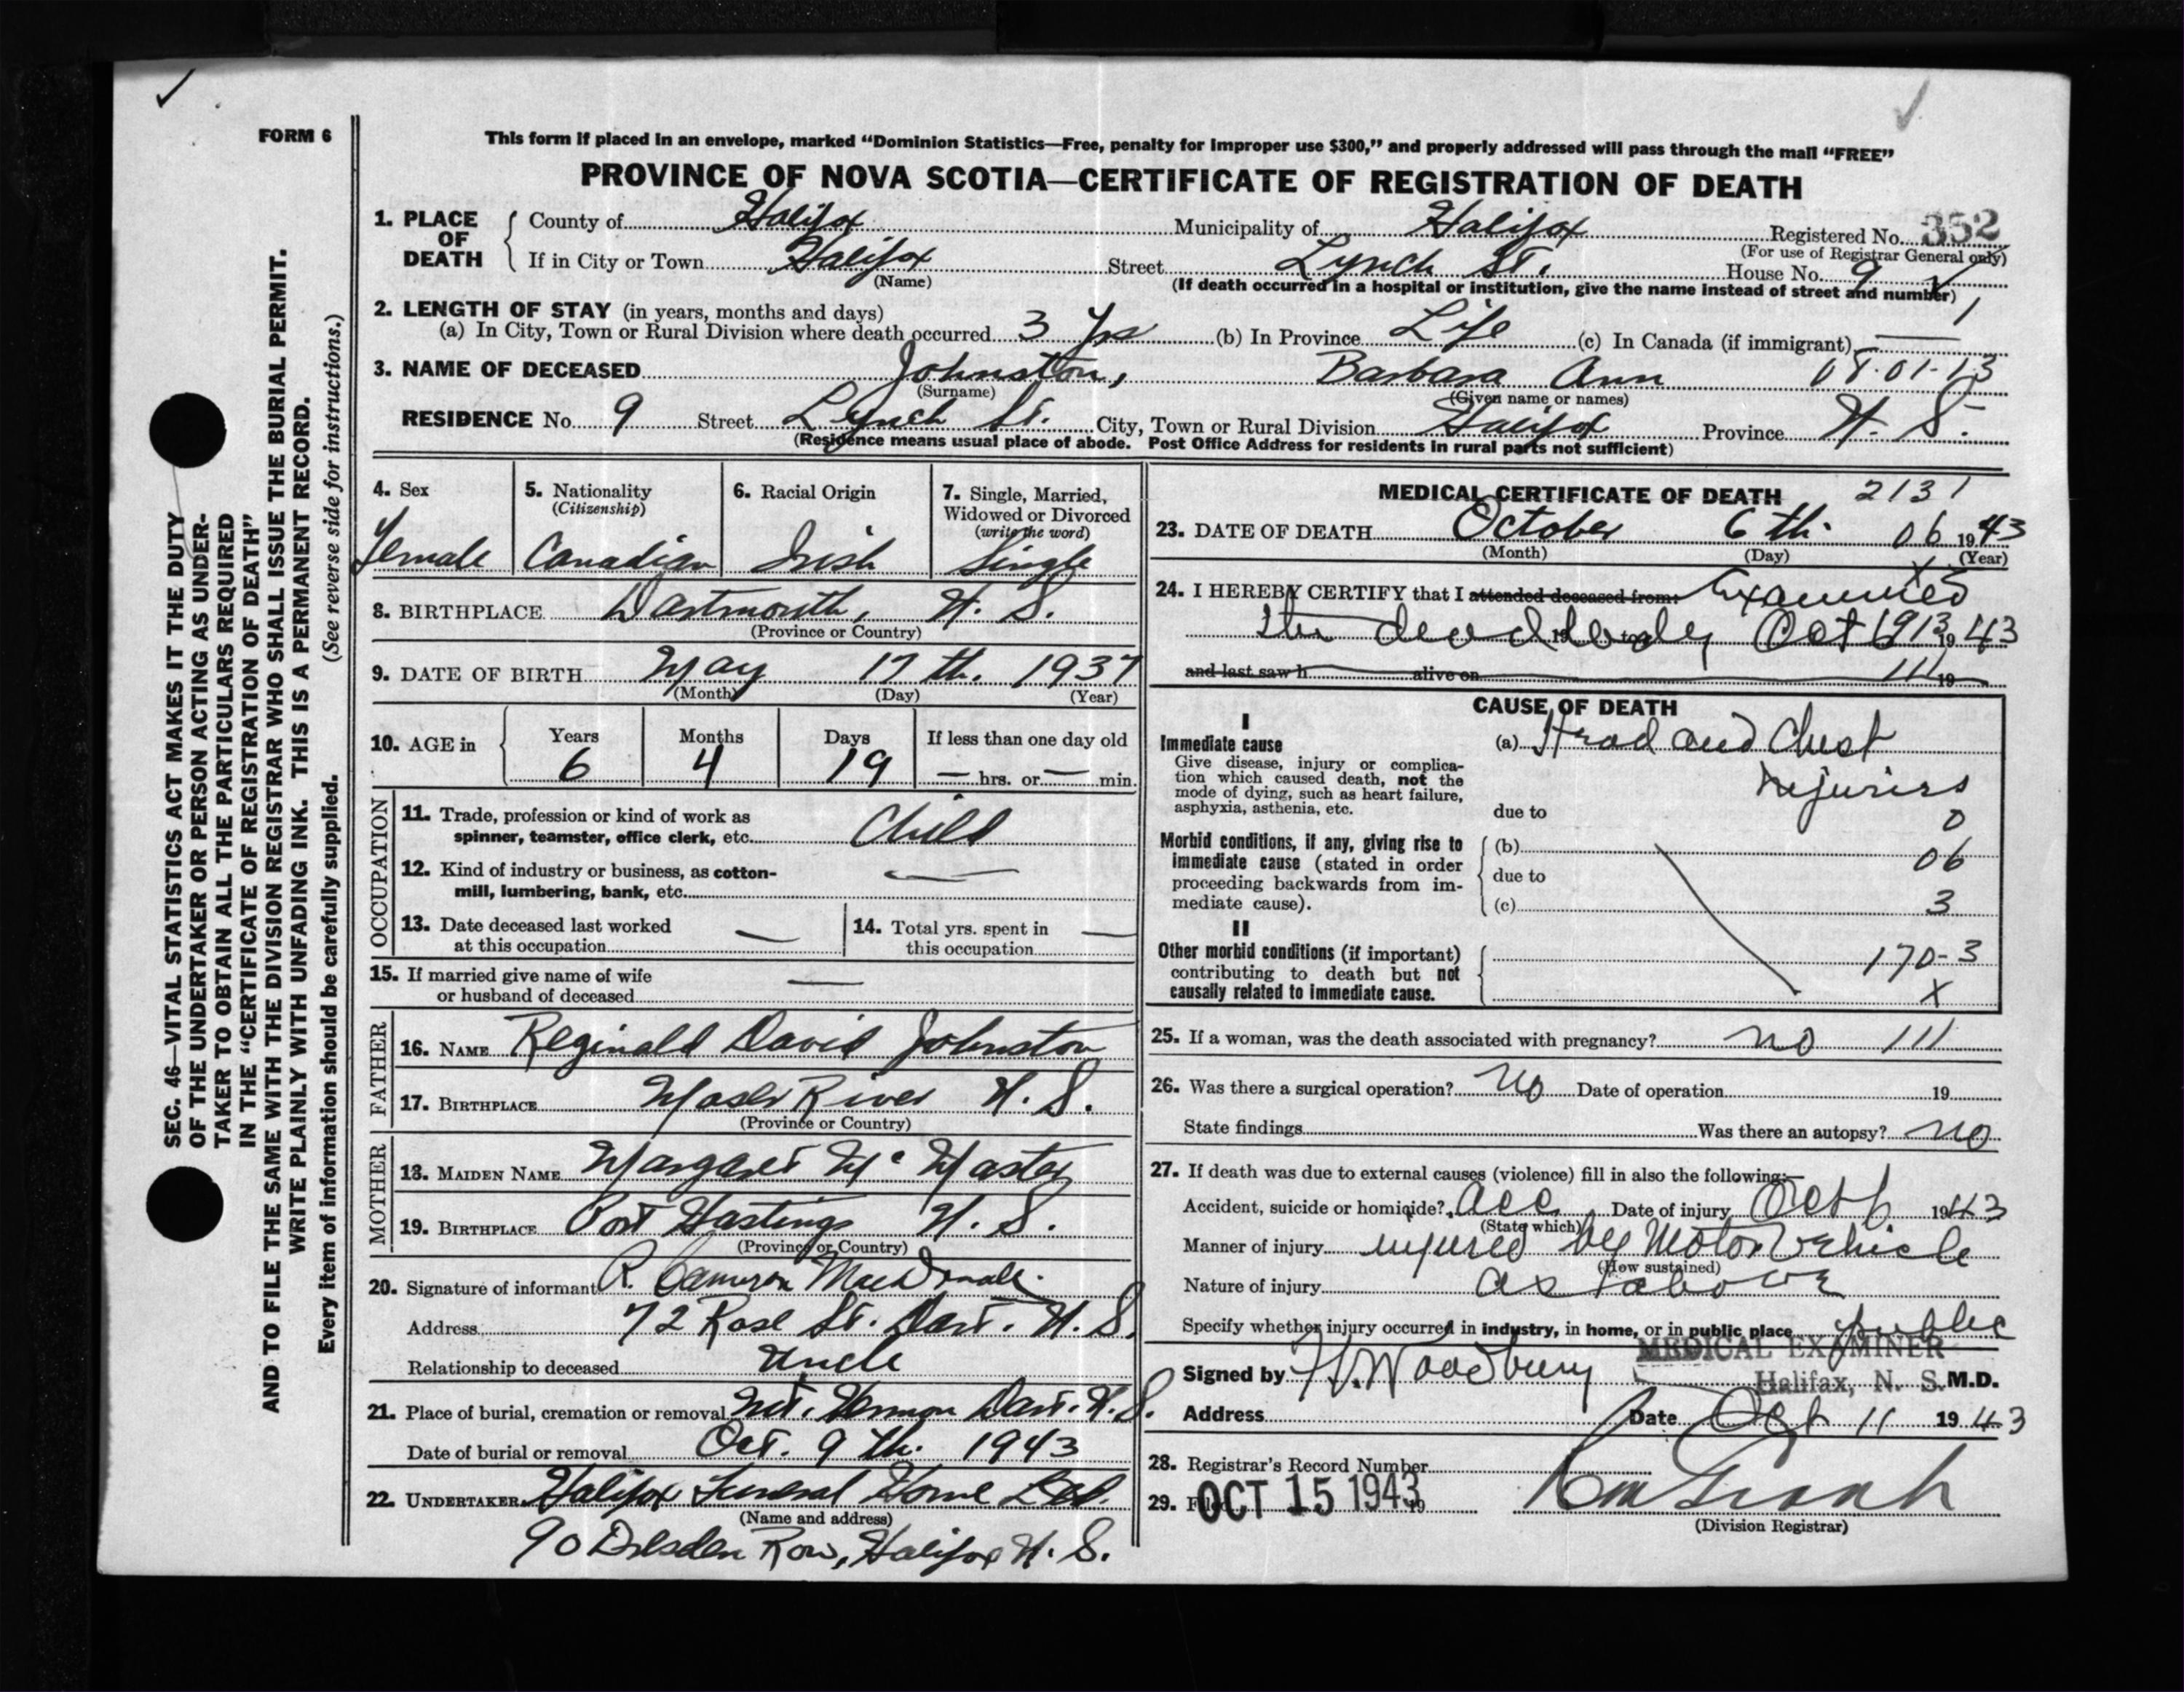 FORM 6
This form if placed in an envelope, marked "Dominion Statistics—Free, penalty for improper use $300," and properly addressed will pass through the mail "FREE"
PROVINCE OF NOVA SCOTIA—CERTIFICATE OF REGISTRATION OF DEATH
1. PLACE OF DEATH
County of Halifax Municipality of Halifax Registered No. 352
(For use of Registrar General only)
If in City or Town Halifax Street Lynch St. House No. 9
(Name) (If death occurred in a hospital or institution, give the name instead of street and number)
2. LENGTH OF STAY (in years, months and days) 1
(a) In City, Town or Rural Division where death occurred 3 Yrs (b) In Province Life (c) In Canada (if immigrant) —
3. NAME OF DECEASED Johnston, Barbara Ann 08-01-13
(Surname) (Given name or names)
RESIDENCE No. 9 Street Lynch St. City, Town or Rural Division Halifax Province N. S.
(Residence means usual place of abode. Post Office Address for residents in rural parts not sufficient)
4. Sex
Female
5. Nationality
(Citizenship)
Canadian
6. Racial Origin
Irish
7. Single, Married,
Widowed or Divorced
(write the word)
Single
8. BIRTHPLACE Dartmouth, N. S.
(Province or Country)
9. DATE OF BIRTH May 17 th. 1937
(Month) (Day) (Year)
10. AGE in
Years Months Days If less than one day old
6 4 19 — hrs. or — min.
OCCUPATION
11. Trade, profession or kind of work as
spinner, teamster, office clerk, etc. Child
12. Kind of industry or business, as cotton-
mill, lumbering, bank, etc. —
13. Date deceased last worked
at this occupation —
14. Total yrs. spent in
this occupation —
15. If married give name of wife
or husband of deceased —
FATHER
16. NAME Reginald David Johnston
17. BIRTHPLACE Moser River N. S.
(Province or Country)
MOTHER
18. MAIDEN NAME Margaret McMaster
19. BIRTHPLACE Port Hastings N. S.
(Province or Country)
20. Signature of informant R. Cameron MacDonald.
Address 72 Rose St. Dart. N. S.
Relationship to deceased Uncle
21. Place of burial, cremation or removal Mt. Hermon Dart. N. S.
Date of burial or removal Oct. 9 th. 1943
22. UNDERTAKER Halifax Funeral Home Ltd.
(Name and address)
90 Dresden Row, Halifax N. S.
MEDICAL CERTIFICATE OF DEATH 2131
23. DATE OF DEATH October 6 th. 06 1943
(Month) (Day) (Year)
24. I HEREBY CERTIFY that I attended deceased from: Examined
the dead body Oct 6 1943
and last saw h alive on 19
CAUSE OF DEATH
I
Immediate cause
Give disease, injury or complica-
tion which caused death, not the
mode of dying, such as heart failure,
asphyxia, asthenia, etc.
(a) Head and Chest
Injuries
due to 0
Morbid conditions, if any, giving rise to
immediate cause (stated in order
proceeding backwards from im-
mediate cause).
(b) 06
due to
(c) 3
II
Other morbid conditions (if important)
contributing to death but not
causally related to immediate cause.
170-3
X
25. If a woman, was the death associated with pregnancy? no 111
26. Was there a surgical operation? No Date of operation 19
State findings Was there an autopsy? no
27. If death was due to external causes (violence) fill in also the following:—
Accident, suicide or homicide? Acc Date of injury Oct 6 1943
(State which)
Manner of injury injured by Motor Vehicle
(How sustained)
Nature of injury as above
Specify whether injury occurred in industry, in home, or in public place public
MEDICAL EXAMINER
Signed by H. Woodbury Halifax, N. S. M.D.
Address Date Oct 11 1943
28. Registrar's Record Number
29. Filed OCT 15 1943 19
(Division Registrar)
SEC. 46—VITAL STATISTICS ACT MAKES IT THE DUTY
OF THE UNDERTAKER OR PERSON ACTING AS UNDER-
TAKER TO OBTAIN ALL THE PARTICULARS REQUIRED
IN THE "CERTIFICATE OF REGISTRATION OF DEATH"
AND TO FILE THE SAME WITH THE DIVISION REGISTRAR WHO SHALL ISSUE THE BURIAL PERMIT.
WRITE PLAINLY WITH UNFADING INK. THIS IS A PERMANENT RECORD.
Every item of information should be carefully supplied. (See reverse side for instructions.)